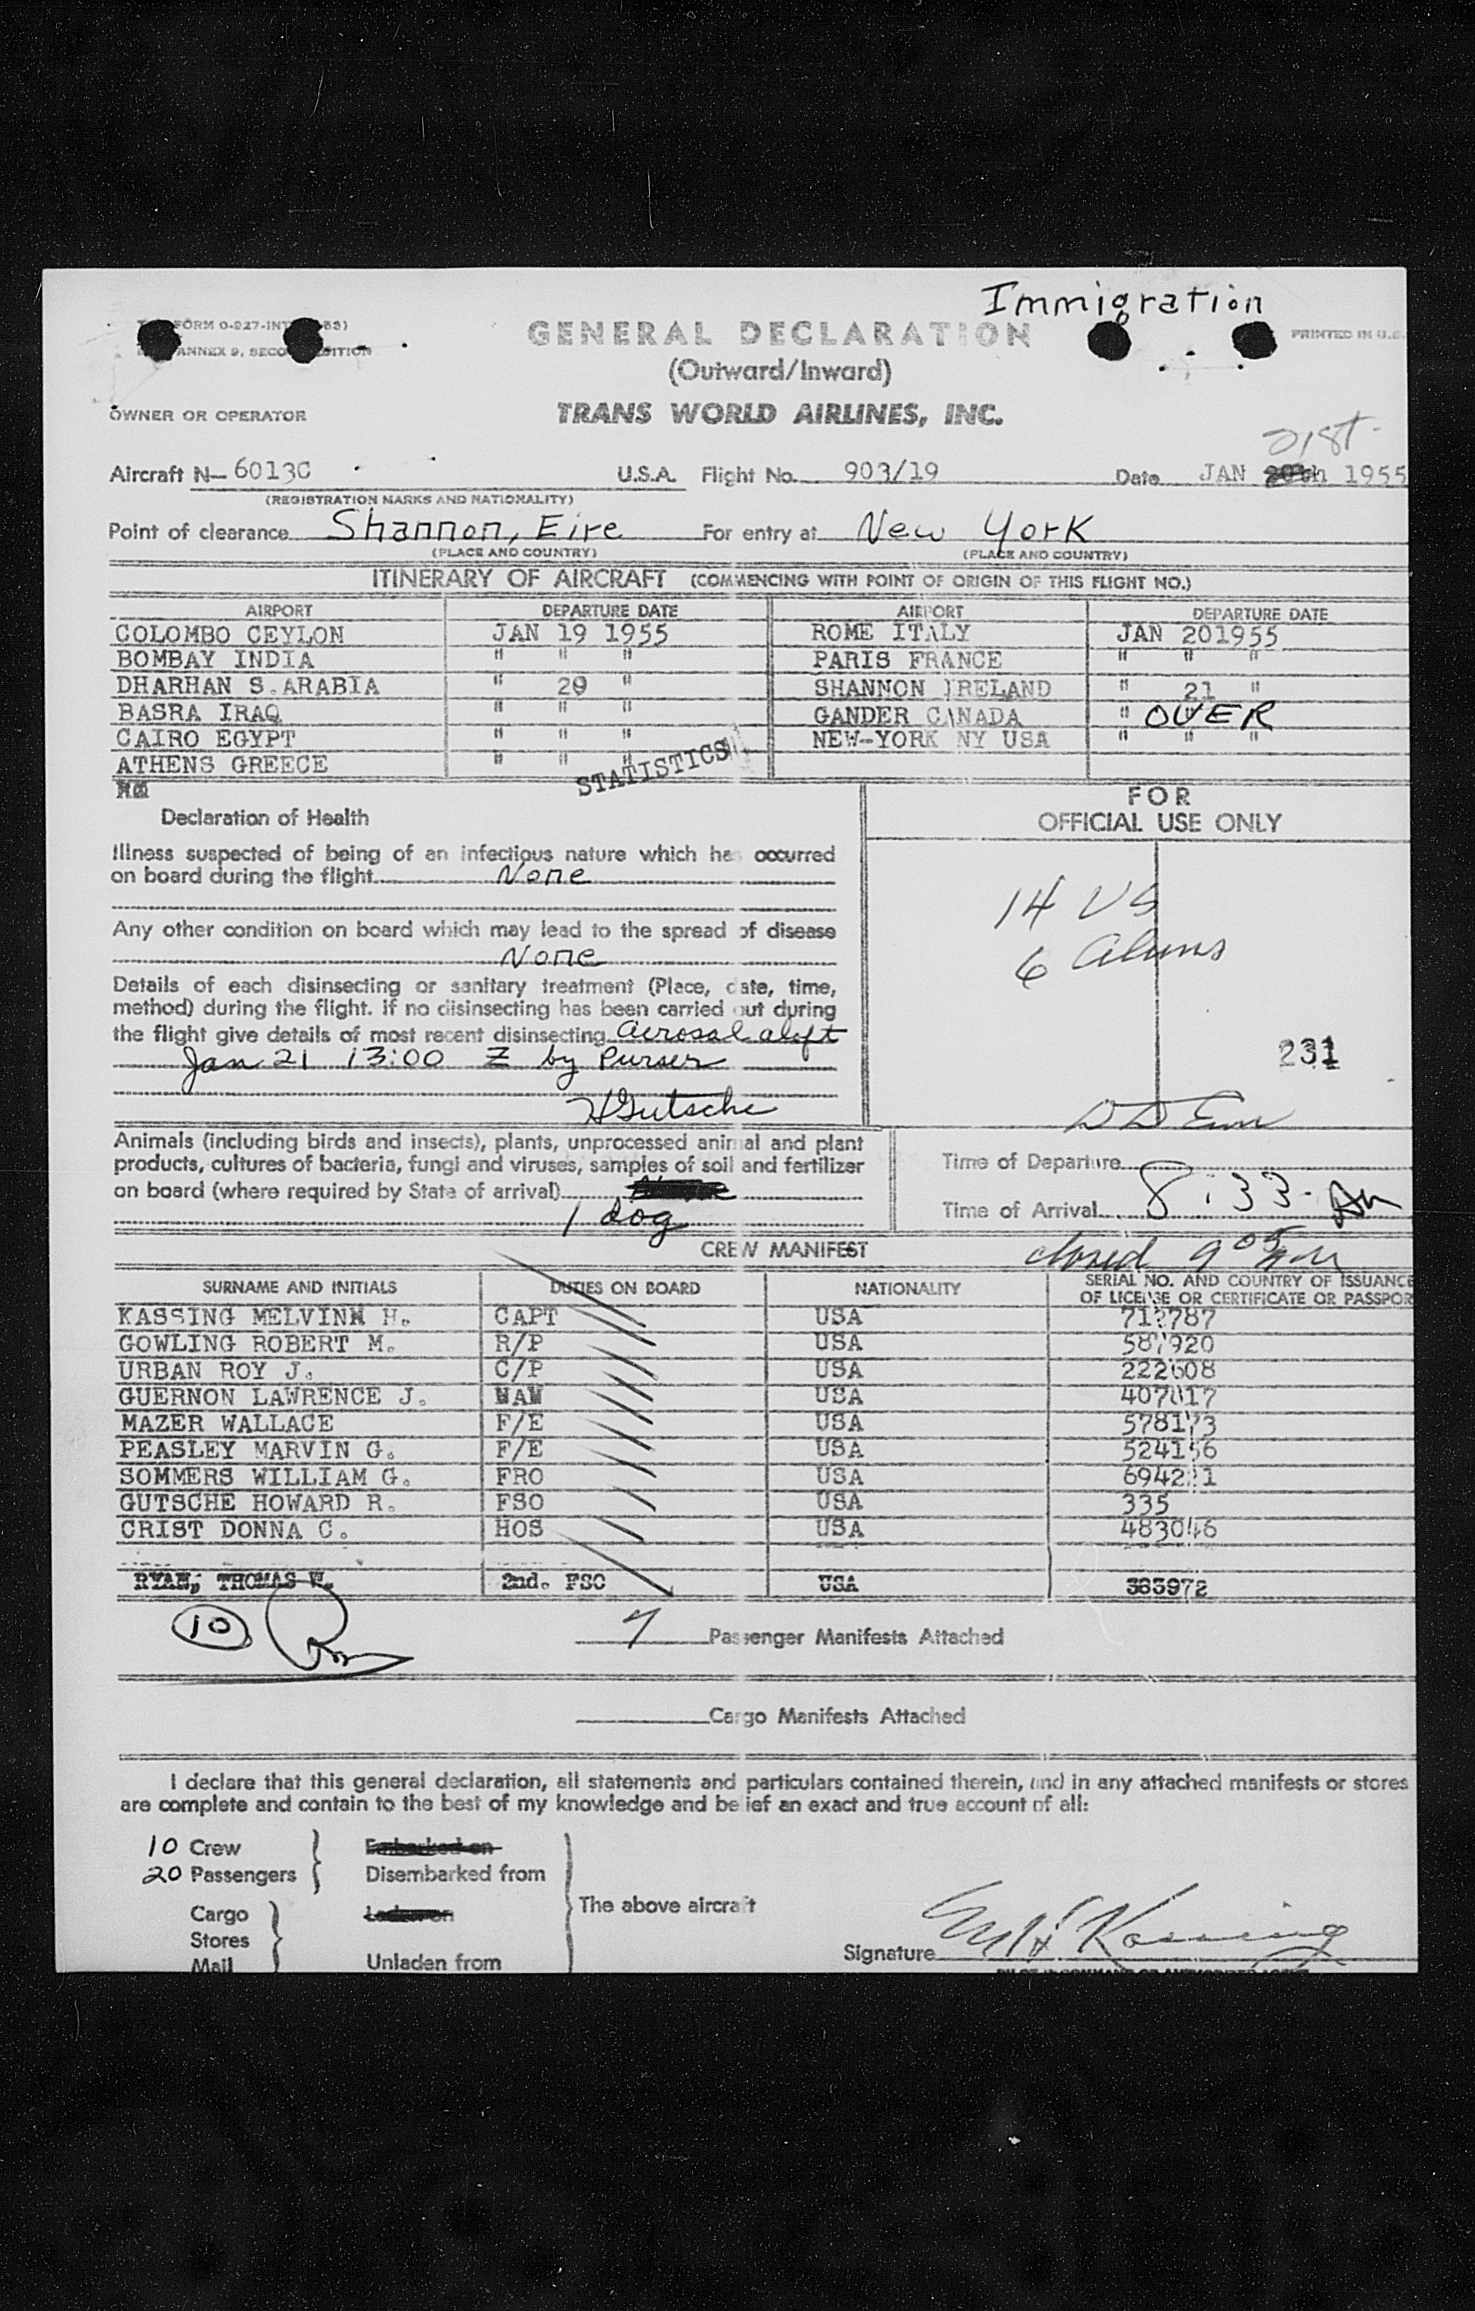 Immigration
FORM 0-927-INT
ANNEX 9, SECOND EDITION
GENERAL DECLARATION
PRINTED IN U.S.
(Outward/Inward)
OWNER OR OPERATOR
TRANS WORLD AIRLINES, INC.
21st
Aircraft N- 6013C U.S.A. Flight No. 903/19 Date JAN 20th 1955
(REGISTRATION MARKS AND NATIONALITY)
Point of clearance Shannon, Eire For entry at New York
(PLACE AND COUNTRY) (PLACE AND COUNTRY)
ITINERARY OF AIRCRAFT (COMMENCING WITH POINT OF ORIGIN OF THIS FLIGHT NO.)
AIRPORT DEPARTURE DATE AIRPORT DEPARTURE DATE
COLOMBO CEYLON JAN 19 1955 ROME ITALY JAN 201955
BOMBAY INDIA " " " PARIS FRANCE " " "
DHARHAN S.ARABIA " 20 " SHANNON IRELAND " 21 "
BASRA IRAQ " " " GANDER CANADA " OVER
CAIRO EGYPT " " " NEW-YORK NY USA " " "
ATHENS GREECE " " "
STATISTICS
FOR
OFFICIAL USE ONLY
Declaration of Health
Illness suspected of being of an infectious nature which has occurred
on board during the flight None
Any other condition on board which may lead to the spread of disease
None
Details of each disinsecting or sanitary treatment (Place, date, time,
method) during the flight. If no disinsecting has been carried out during
the flight give details of most recent disinsecting Aerosal aloft
Jan 21 13:00 Z by Purser
HGutsche
14 US
6 Aliens
231
Animals (including birds and insects), plants, unprocessed animal and plant
products, cultures of bacteria, fungi and viruses, samples of soil and fertilizer
on board (where required by State of arrival)
1 dog
Time of Departure
Time of Arrival 8:33 AM
CREW MANIFEST closed 9 05 AM
SURNAME AND INITIALS DUTIES ON BOARD NATIONALITY SERIAL NO. AND COUNTRY OF ISSUANCE
OF LICENSE OR CERTIFICATE OR PASSPOR
KASSING MELVINN H. CAPT USA
GOWLING ROBERT M. R/P USA
URBAN ROY J. C/P USA 222608
GUERNON LAWRENCE J. NAV USA 407017
MAZER WALLACE F/E USA 578173
PEASLEY MARVIN G. F/E USA 524156
SOMMERS WILLIAM G. FRO USA
GUTSCHE HOWARD R. FSO USA 335
CRIST DONNA C. HOS USA 483046
RYAN, THOMAS W. 2nd. FSO USA 383972
10
7 Passenger Manifests Attached
Cargo Manifests Attached
I declare that this general declaration, all statements and particulars contained therein, and in any attached manifests or stores
are complete and contain to the best of my knowledge and belief an exact and true account of all:
10 Crew Embarked on
20 Passengers Disembarked from
The above aircraft
Cargo Laden on
Stores
Mail Unladen from
Signature MH Kassing